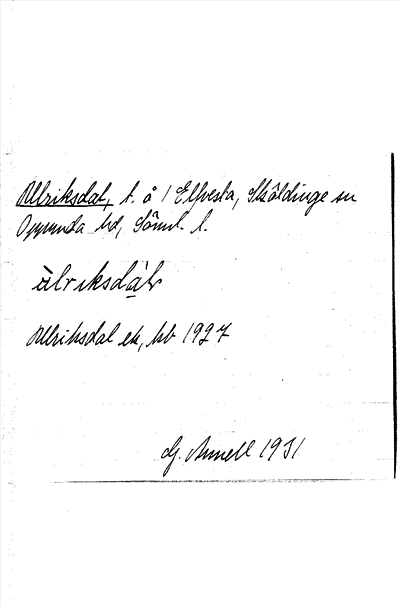 Ullriksdal, t. å 1 Elfvesta, Sköldinge sn
Oppunda hd, Söml. l.
ùlriksdàl
Ullriksdal ek, kb 1927
G. Annell 1931